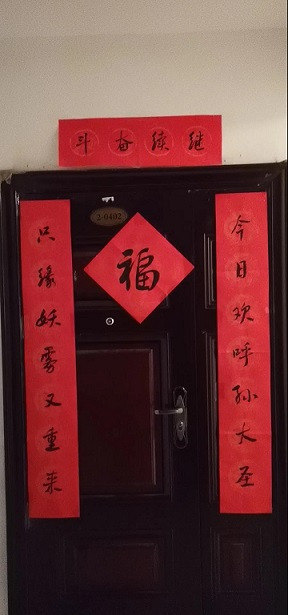 继续奋斗
今日欢呼孙大圣
只缘妖雾又重来
福
2-0402